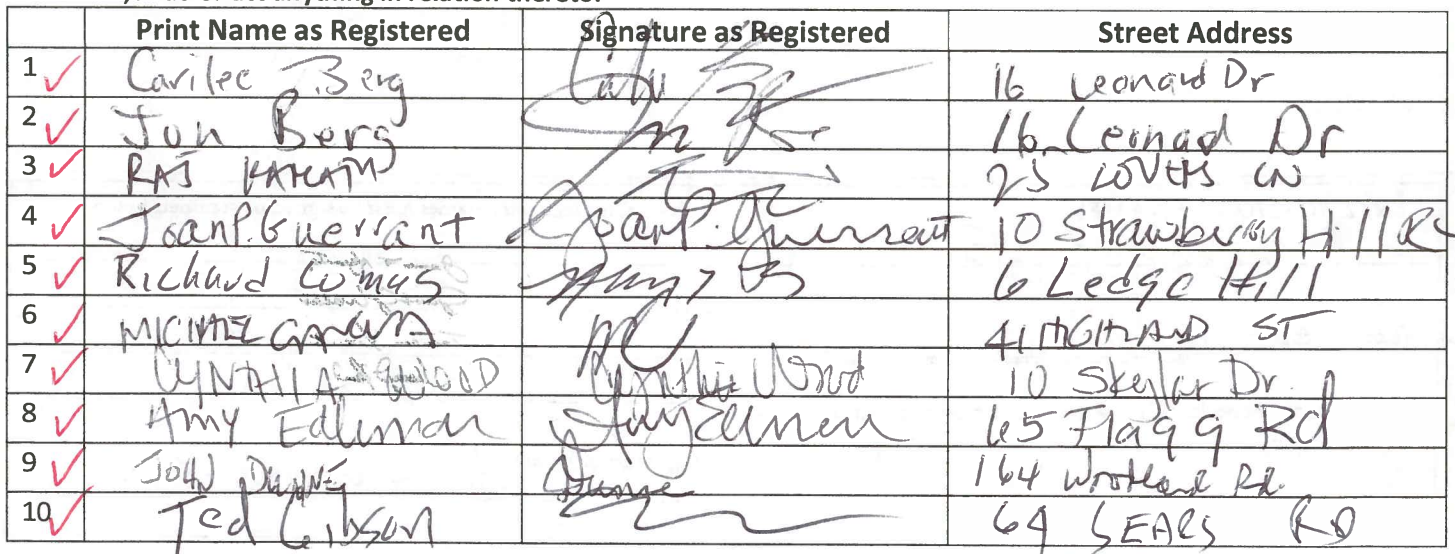 Print Name as Registered Signature as Registered Street Address
1 Carilee Berg 16 Leonard Dr
2 Jon Berg 16 Leonad Dr
3 RAJ 25 LOVERS LN
4 Joan P. Guerrant Joan P. Guerrant 10 Strawberry Hill Rd
5 Richard Comus 6 Ledge Hill
6 MICHAEL 41 HIGHLAND ST
7 CYNTHIA WOOD Cynthia Wood 10 Skylar Dr.
8 Amy Edleman 65 Flagg Rd
9 JOHN DUNNE Dunne 164 Rd.
10 Ted Gibson 64 SEARS RD